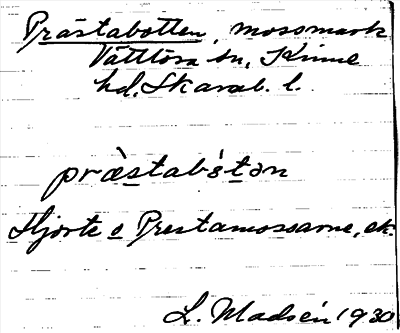 Prästabotten, mossmark
Vättlösa sn, Kinne
hd. Skarab. l.
præ̀stabɔ́tən
Hjorte o Prestamossarne, ek.
L. Madsén 1930